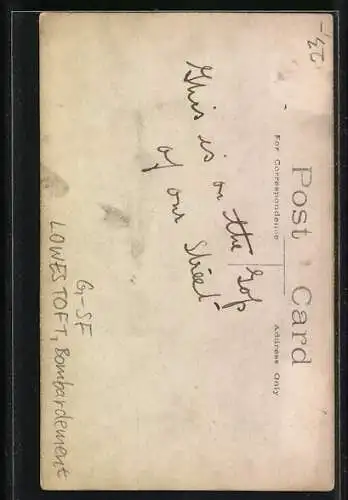 23,-
Post Card
For Correspondence
Address Only
This is on the top
of our street
G-SF
LOWESTOFT, Bombardement